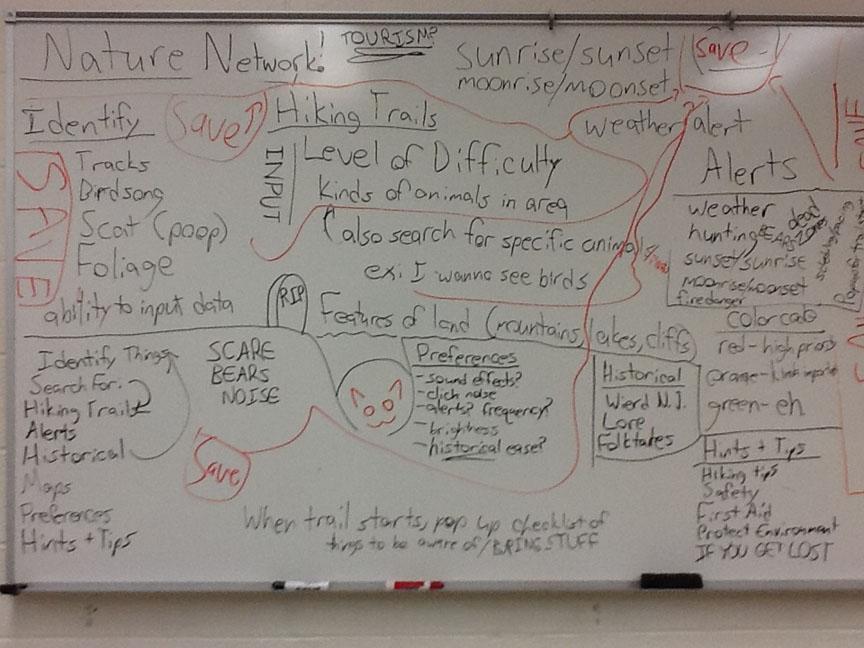 Nature Network!
TOURISM?
sunrise/sunset
moonrise/moonset
Save
weather alert
Identify
Save
Tracks
Birdsong
Scat (poop)
Foliage
ability to input data
SAVE
Hiking Trails
INPUT
Level of Difficulty
kinds of animals in area
also search for specific animals
ex: I wanna see birds
Features of land (mountains, lakes, cliffs)
RIP
Alerts
weather
hunting
BEARS
dead
zones
sunset/sunrise
moonrise/moonset
fire danger
color code
red-high priority
orange-kinda
green-eh
Identify Things
Search For:
Hiking Trails
Alerts
Historical
Maps
Preferences
Hints + Tips
SCARE
BEARS
NOISE
Save
Preferences
-sound effects?
-click noise
-alerts? frequency?
-brightness
-historical ease?
Historical
Wierd N.J.
Lore
Folktales
Hints + Tips
Hiking tips
Safety
First Aid
Protect Environment
IF YOU GET LOST
When trail starts, pop up checklist of
things to be aware of/BRING STUFF